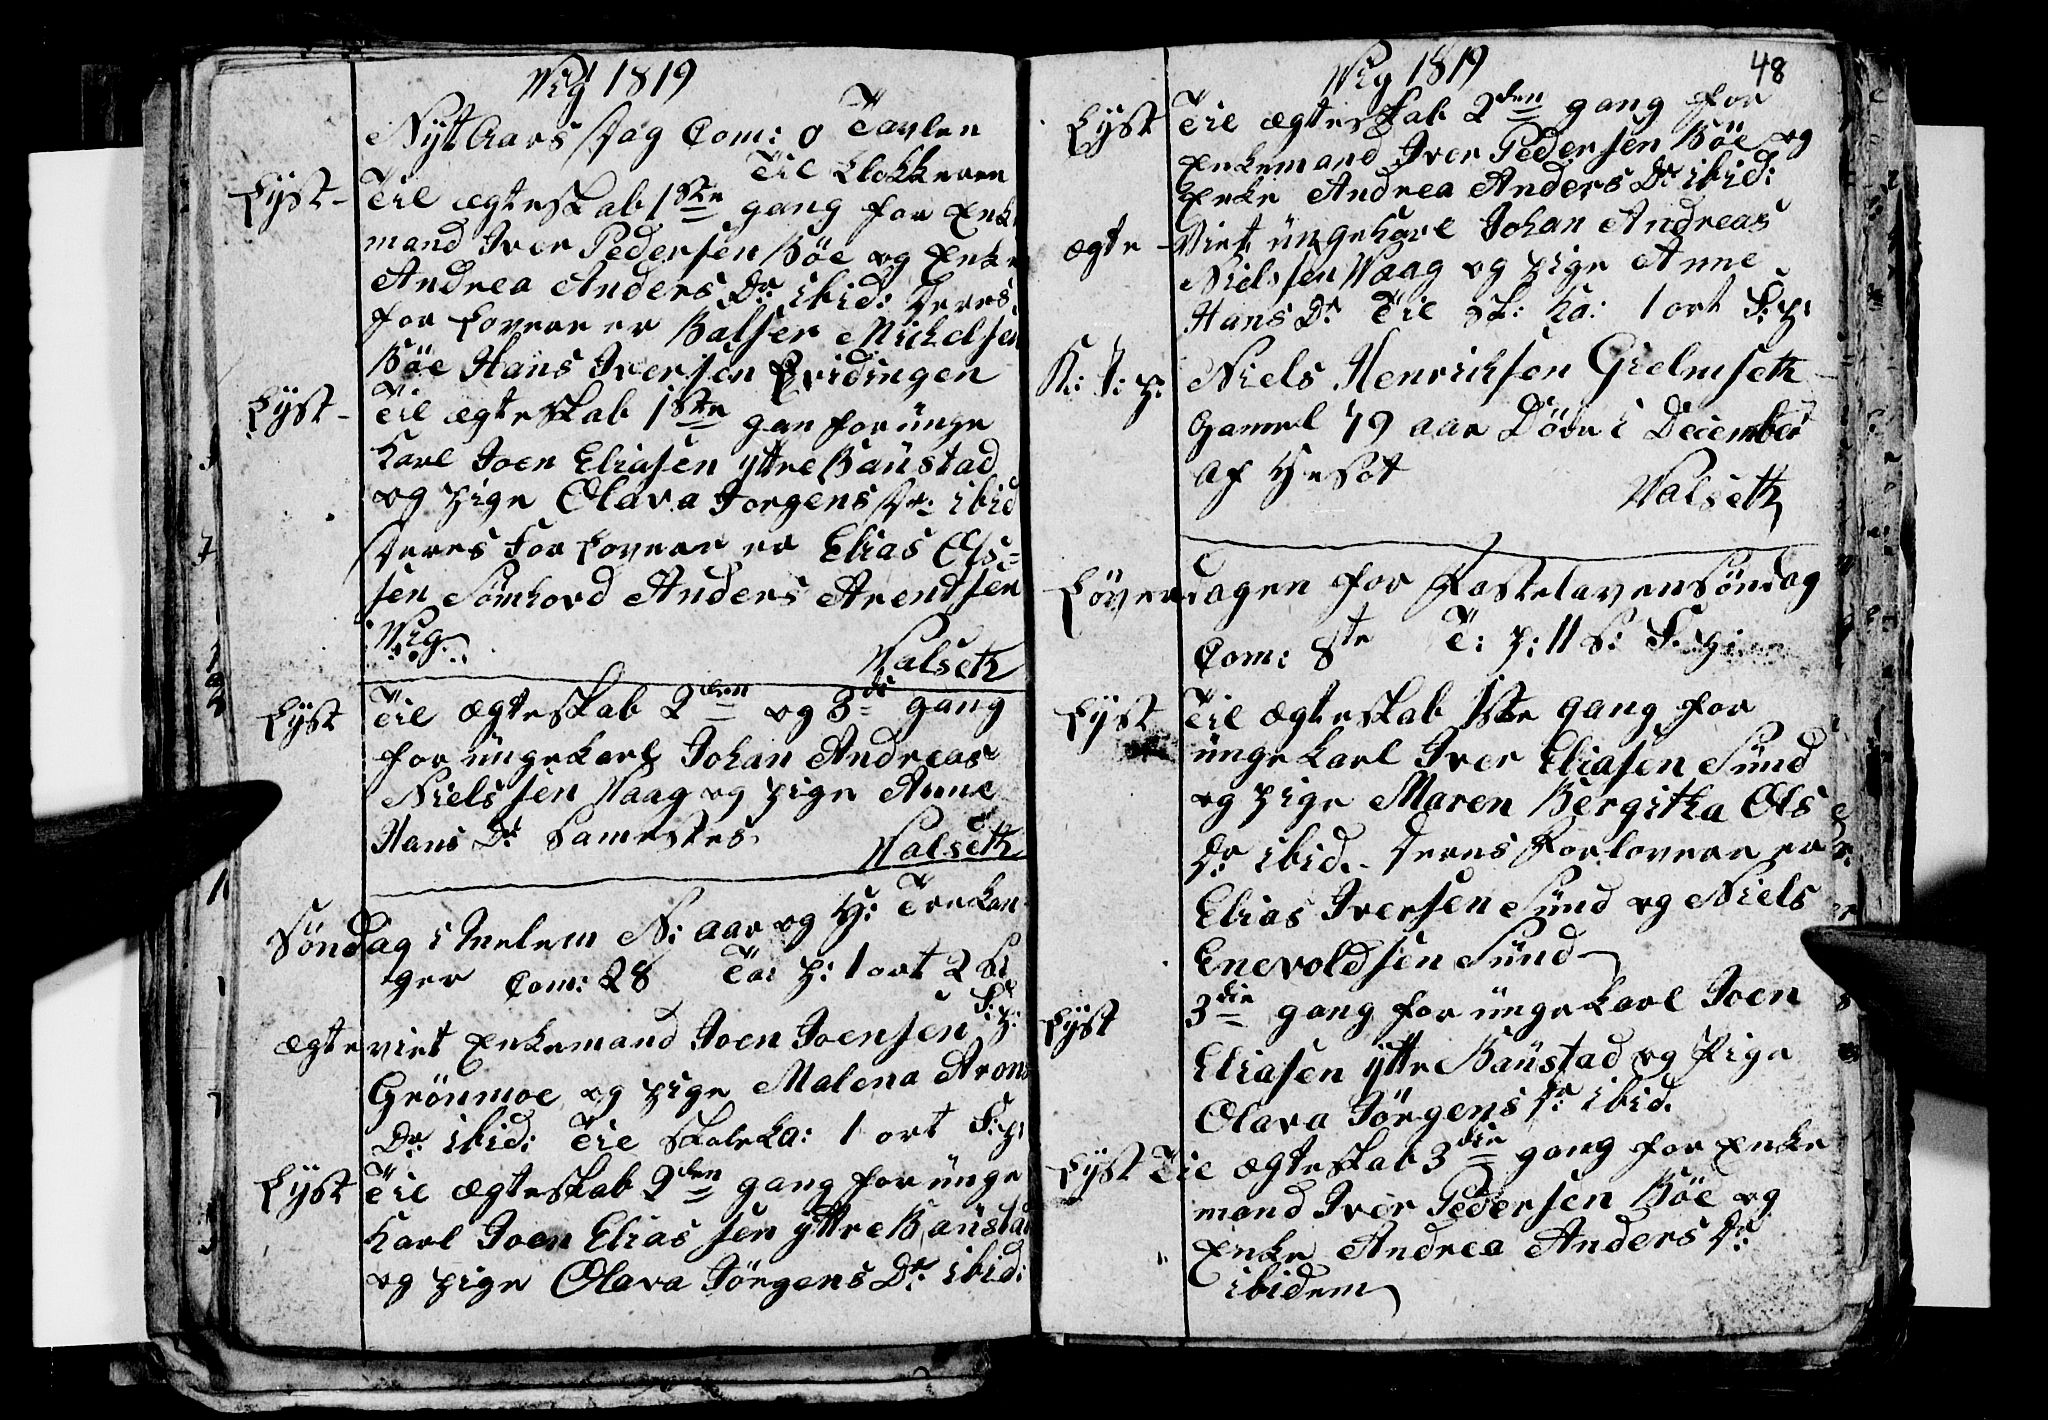 Wig 1819
Nyt Aars Dag Com: 0 Tavlen
Til Klokkeren
Lÿst - Til ægteskab 1ste gang for Enke
mand Iver Pedersen Böe og Enke
Andrea Anders Dr: ibid: Deres
for Lovere er Balser Michelsen
Böe Hans Iversen Qvidingen
Lÿst - Til ægteskab 1ste gan for ünge
Karl Joen Eliasen ÿttre Baüstad
og pige Olava Jorgens Dr: ibid
Deres For Lovere er Elias Ols=
sen Sömhovd Anders Arentsen
Wig
Valseth
Lÿst Til ægteskab 2den og 3die gang
for üngekarl Johan Andreas
Nielssen Vaag og pige Anne
Hans Dr Samestes
Valseth
Söndag i Melem N: aar og H: Trekon-
ger Com: 28 Ta: p: 1 ort 2 s:
S: p:
ægteviet Enkemand Joen Joensen
Grönmoe og pige Malena Arons
Dr ibid: Til Skoleka: 1 ort S: p:
Lÿst Til ægteskab 2den gang for ünge
Karl Joen Elias sen ÿttre Baüstad
og pige Olava Jörgens Dr: ibid:
Wig 1819
48
Lÿst Til ægteskab 2den gang for
Enkemand Iver Pedersen Böe og
Enke Andrea Anders Dr: ibid:
ægte - Viet üngekarl Johan Andreas
Nielssen Vaag og pige Anne
Hans Dr Til Sk: Ka: 1 ort S: p:
K: J: p: Niels Henriksen Gielmseth
Gammel 79 aar Döde i December
af Hesot
Valseth
Löverdagen for Fastelavensöndag
Com: 8te T: p: 11 s: S: p:
Lÿst Til ægteskab 1ste gang for
ünge Karl Iver Eliasen Sünd
og pige Maren Bergitha Ols
Dr ibid. - Deres Forlovere er
Elias Iversen Sünd og Niels
Enevoldsen Sünd
Lÿst 3die gang for ünge Karl Joen
Eliasen ÿttre Baüstad og Pige
Olava Jörgens Dr ibid.
Lÿst Til ægteskab 3die gang for Enke
mand Iver Pedersen Böe og
Enke Andrea Anders Dr:
ibidem